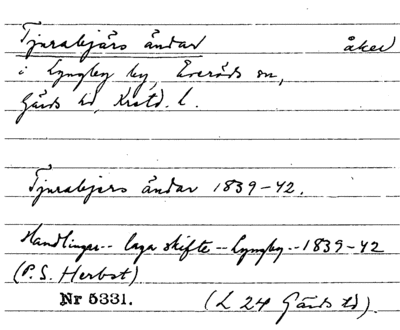 Tjurabjärs ändar åker
i Lyngby by, Everöds sn,
Gärds hd, Krstd. l.
Tjurabjers ändar 1839-42.
Handlingar -- laga skifte -- Lyngby -- 1839-42
(P. S. Herbst)
Nr 5331. (L 24 Gärds hd).